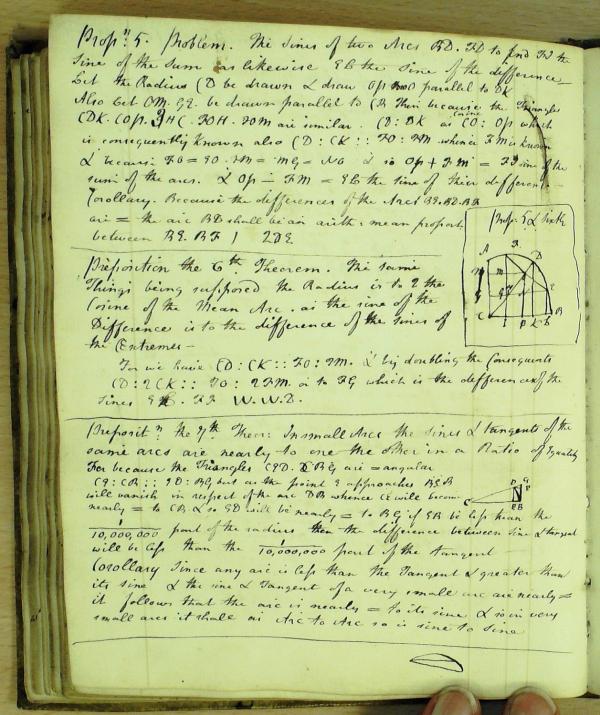 Propn 5. Problem. The Sines of two Arcs BD. FD to find FI the
Sine of the Sum as likewise EL the Sine of the difference
Let the Radius CD be drawn & draw OP parallel to DK
Also let OM. GE. be drawn parallel to CB Then because the Triangles
CDK. COP. FOM are similar. CD: DK as CO: OP which
is consequently known also CD: CK:: FO: FM whence FM is known
& because FO = EO. FM = MG = NO OP + FM = FI sine of the
sum of the arcs. & OP - FM = EL the sine of their difference
Corollary. Because the differences of the Arcs BE. BD. BF
are = the arc BD shall be an arith: mean proport
between BE. BF
Prop: 5 & Sixth
A D
C I P K L B
Preposition the 6th Theorem. The same
Things being supposed the Radius is to 2 the
Cosine of the Mean Arc. as the sine of the
Difference is to the difference of the sines of
the Extremes
For we have CD: CK:: FO: FM. & by doubling the Consequents
CD: 2CK:: FO: 2FM. or to FG which is the difference of the
Sines EL. FI W.W.D.
Preposit.n the 7th Theor: In small Arcs the sines & tangents of the
same arcs are nearly to one the other in a Ratio of Equality
For because the Triangles CED. CBG are = angular
CE: CB:: ED: BG but as the point E approaches B EB
will vanish in respect of the arc DB whence CE will become
nearly = to CB & so ED will be nearly = to BG if EB be less than the
1/10,000,000 part of the radius then the difference between sine & tangent
will be less than the 1/10,000,000 part of the tangent
Corollary Since any arc is less than the Tangent & greater than
its sine & the sine & Tangent of a very small arc are nearly =
it follows that the arc is nearly = to its sine & so in very
small arcs it shall as Arc to Arc so is sine to sine